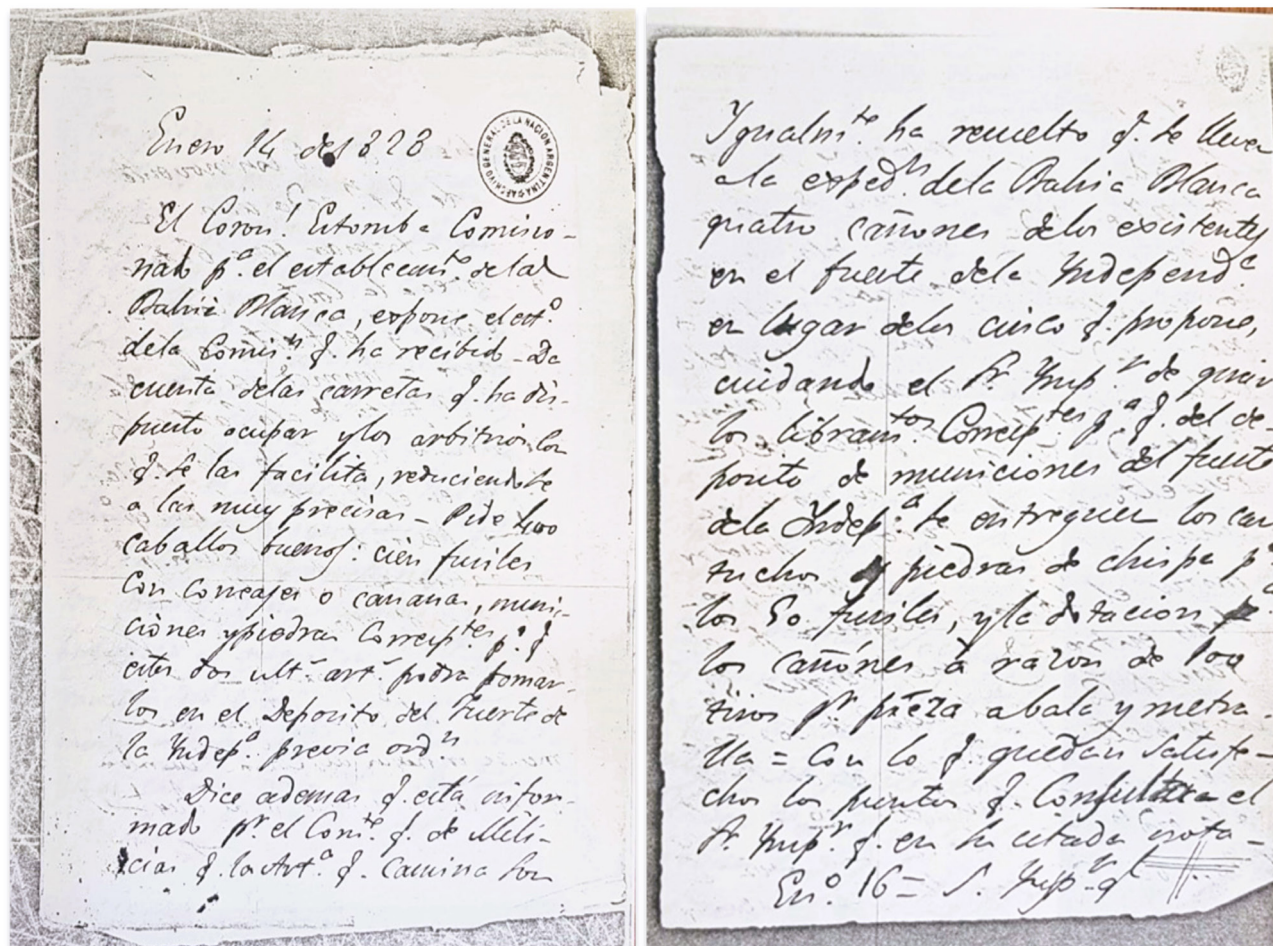 Enero 14 de 1828
ARCHIVO GENERAL DE LA NACION ARGENTINA
El Coron! Estomba Comisio-
nado pª. el establecimto. de la
Bahia Blanca, espone el estº.
dela Comisn. q. ha recibido - Da
cuenta delas carretas q. ha dis-
puesto ocupar y los arbitrios con
q. se las facilita, reduciendose
a las muy precisas - Pide 400
caballos buenos: cien fusiles
con correajes o cananas, muni-
ciones y piedras Corresptes. pª. q
estos dos ults. arts. podra tomar-
los en el Deposito del Fuerte de
la Yndepª. previa ordn
Dice ademas q. está infor-
mado pr. el Comte. q. de Mili-
cias q. la Artª. q. camina son
Ygualmte ha resuelto q. se lleven
ala expedn. dela Bahia Blanca
quatro cañones delos existentes
en el fuerte dela Yndependª.
en lugar delos cinco q. propone,
cuidando el Sr. Ynspr. de girar
los libramtos. Corresptes pª. q. del de-
posito de municiones del fuerte
dela Yndepª. se entreguen los car
tuchos y piedras de chispa pª.
los 50 fusiles, y la dotacion
los cañones à razon de 100
tiros pr pieza abala y metra-
lla = Con lo q. quedan satisfe-
chos los puntos q. Consulta el
Sr. Ynspr. q. en su citada nota -
Enº. 16 = S. Ynspr. gl